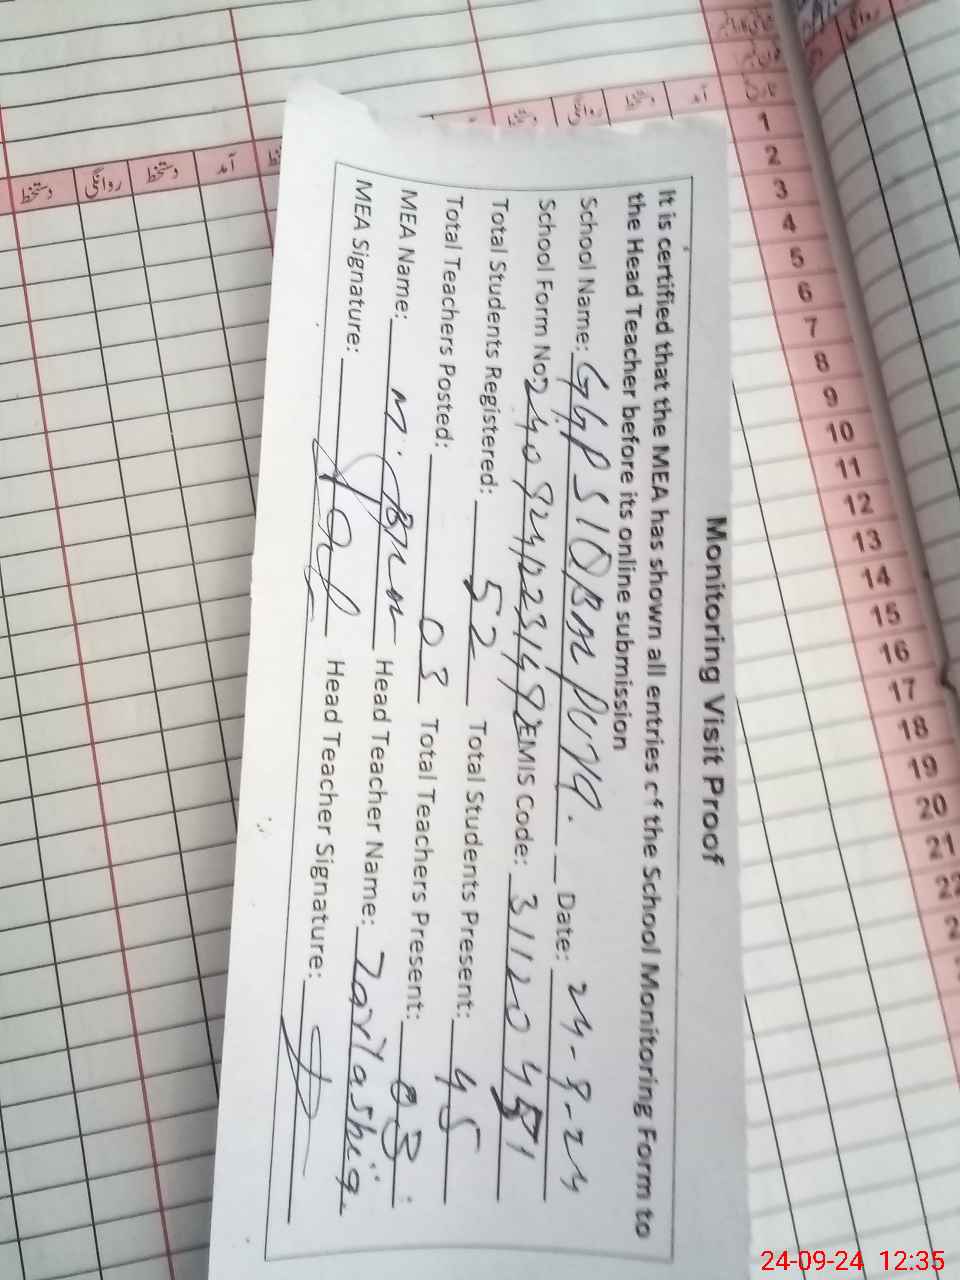 Monitoring Visit Proof
It is certified that the MEA has shown all entries of the School Monitoring Form to
the Head Teacher before its online submission
School Name: GGPS Date: 24-9-24
School Form No: EMIS Code: 31120451
Total Students Registered: 52 Total Students Present: 45
Total Teachers Posted: 03 Total Teachers Present: 03
MEA Name: M. Head Teacher Name:
MEA Signature: Head Teacher Signature:
آمد
دستخط
روانگی
دستخط
آمد
دستخط
روانگی
دستخط
1
2
3
4
5
6
7
8
9
10
11
12
13
14
15
16
17
18
19
20
21
24-09-24 12:35